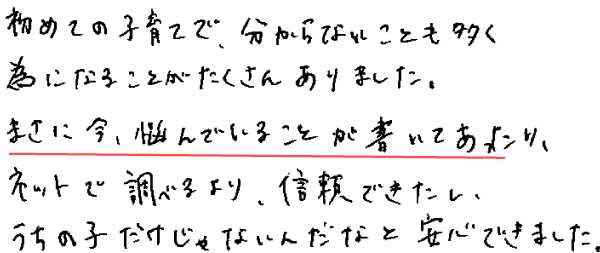 初めての子育てで、分からないことも多く
為になることがたくさんありました。
まさに今、悩んでいることが書いてあったり、
ネットで調べるより、信頼できたし、
うちの子だけじゃないんだなと安心できました。